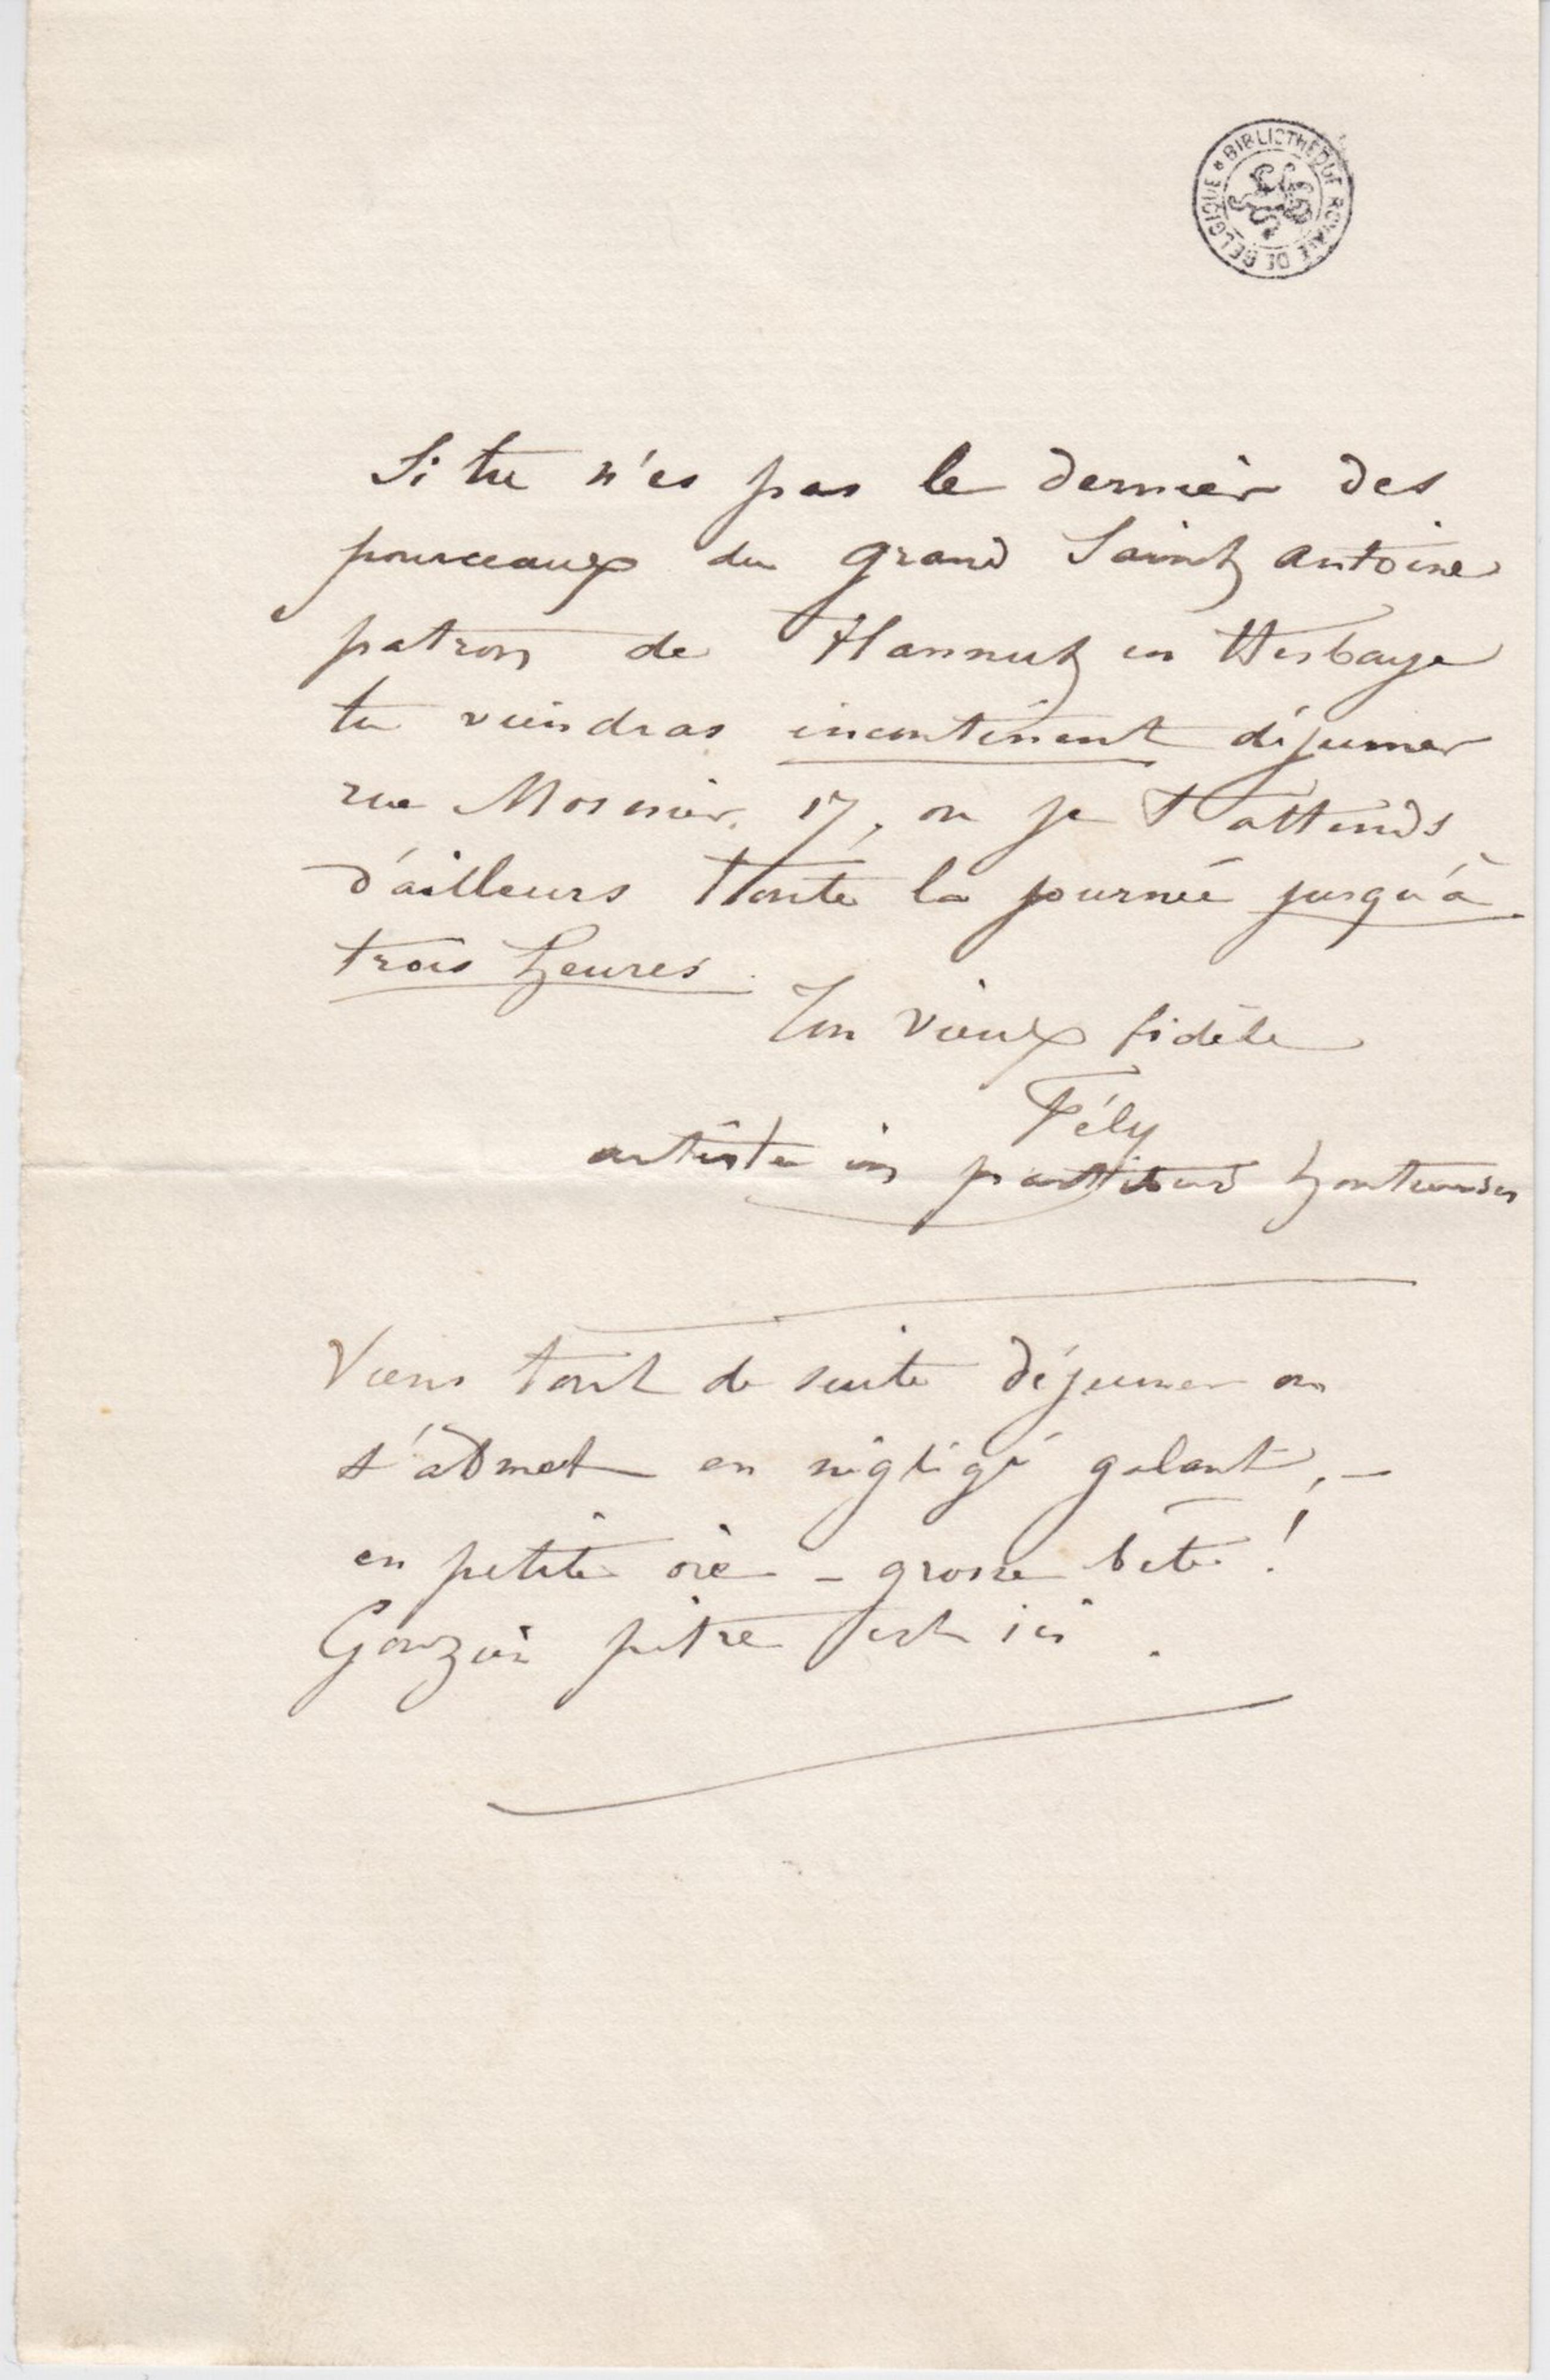 BIBLIOTHEQUE ROYALE DE BELGIQUE
Si tu n'es pas le dernier des
pourceaux du grand Saint Antoine
patron de Hannut en Hesbaye
tu viendras incontinent déjeuner
rue Mosnier, 17, où je t'attends
d'ailleurs toute la journée jusqu'à
trois heures.
Ton vieux fidèle
Fély
artiste in partibus
Viens tout de suite déjeuner on
s'admet en négligé galant, –
en petite oie – grosse bête !
Gouzien pitre est ici.